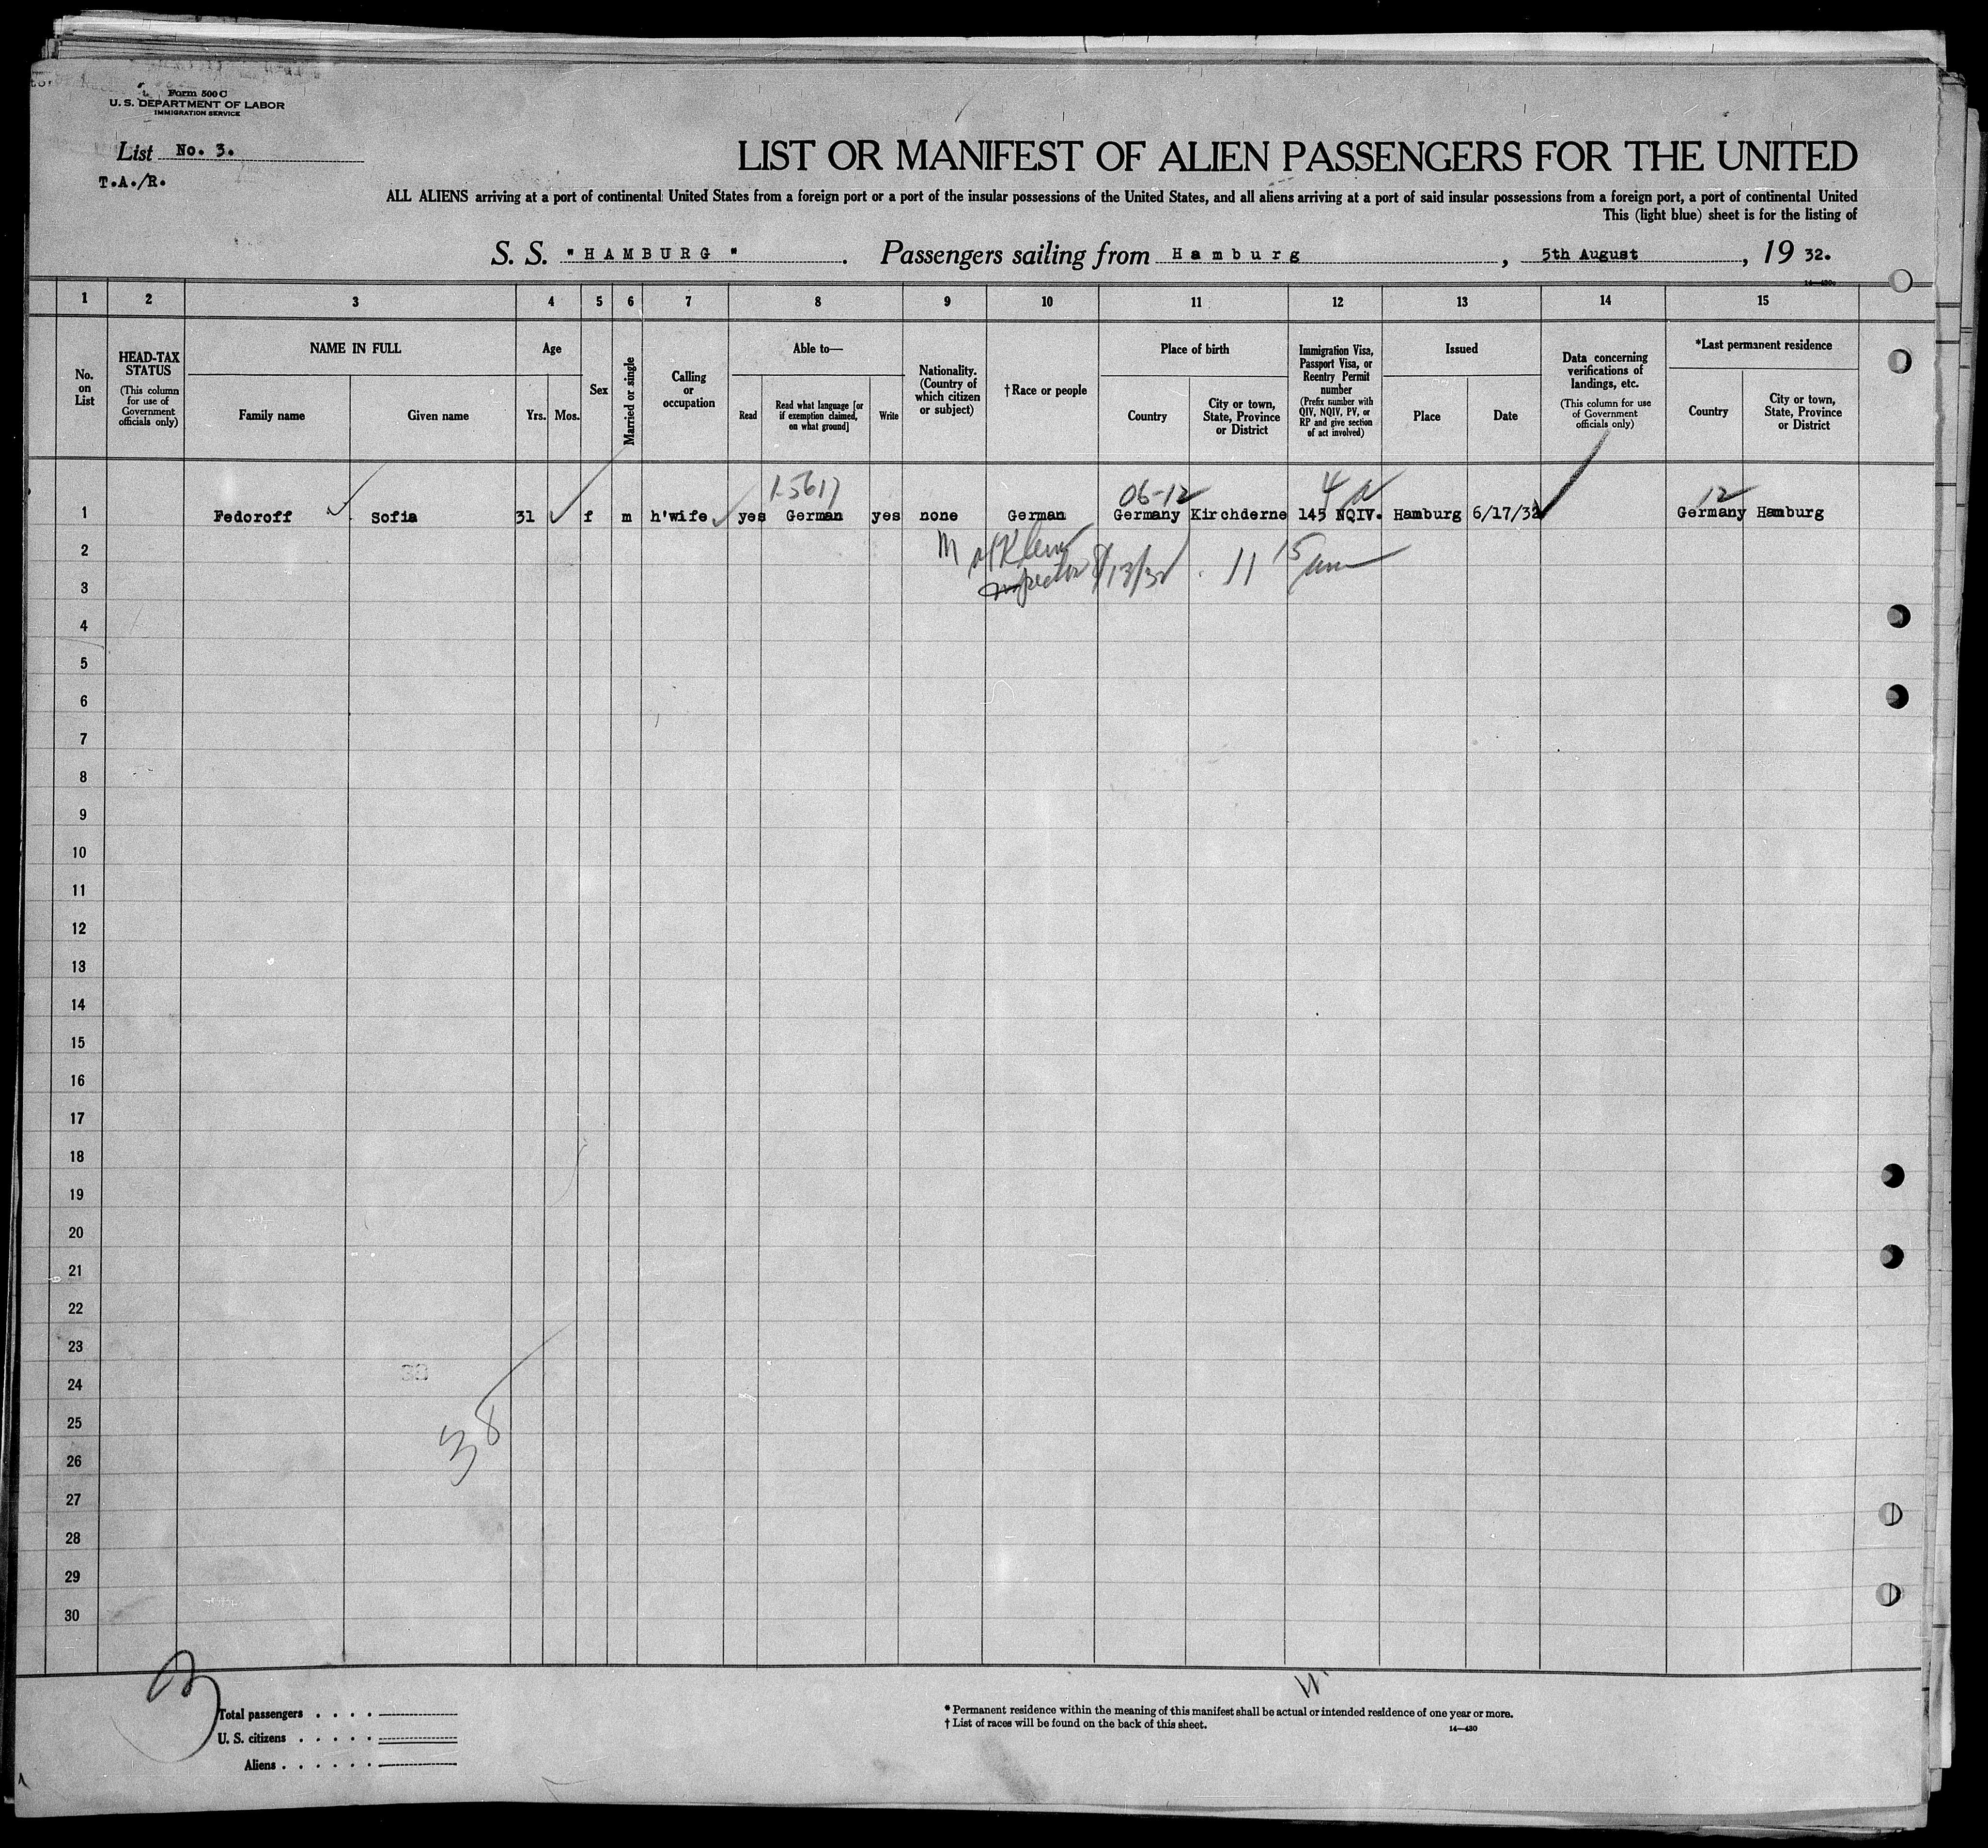 Form 500 C
U. S. DEPARTMENT OF LABOR
IMMIGRATION SERVICE
List No. 3.
T.A./R.
LIST OR MANIFEST OF ALIEN PASSENGERS FOR THE UNITED
ALL ALIENS arriving at a port of continental United States from a foreign port or a port of the insular possessions of the United States, and all aliens arriving at a port of said insular possessions from a foreign port, a port of continental United
This (light blue) sheet is for the listing of
S. S. "HAMBURG". Passengers sailing from Hamburg, 5th August, 19 32.
14—430
1 2 3 4 5 6 7 8 9 10 11 12 13 14 15
No. on List
HEAD-TAX STATUS
(This column for use of Government officials only)
NAME IN FULL
Family name Given name
Age
Yrs. Mos.
Sex
Married or single
Calling or occupation
Able to—
Read Read what language [or if exemption claimed, on what ground] Write
Nationality. (Country of which citizen or subject)
† Race or people
Place of birth
Country City or town, State, Province or District
Immigration Visa, Passport Visa, or Reentry Permit number
(Prefix number with QIV, NQIV, PV, or RP and give section of act involved)
Issued
Place Date
Data concerning verifications of landings, etc.
(This column for use of Government officials only)
*Last permanent residence
Country City or town, State, Province or District
1-5617 06-12 4 a 12
1 Fedoroff Sofia 31 f m h'wife yes German yes none German Germany Kirchderne 145 NQIV. Hamburg 6/17/32 Germany Hamburg
2
Inspector 8/13/32 11 15 am
3
4
5
6
7
8
9
10
11
12
13
14
15
16
17
18
19
20
21
22
23
24
25
26
27
28
29
30
38
Total passengers . . . .
U. S. citizens . . . . .
Aliens . . . . . .
* Permanent residence within the meaning of this manifest shall be actual or intended residence of one year or more.
† List of races will be found on the back of this sheet.
14—430